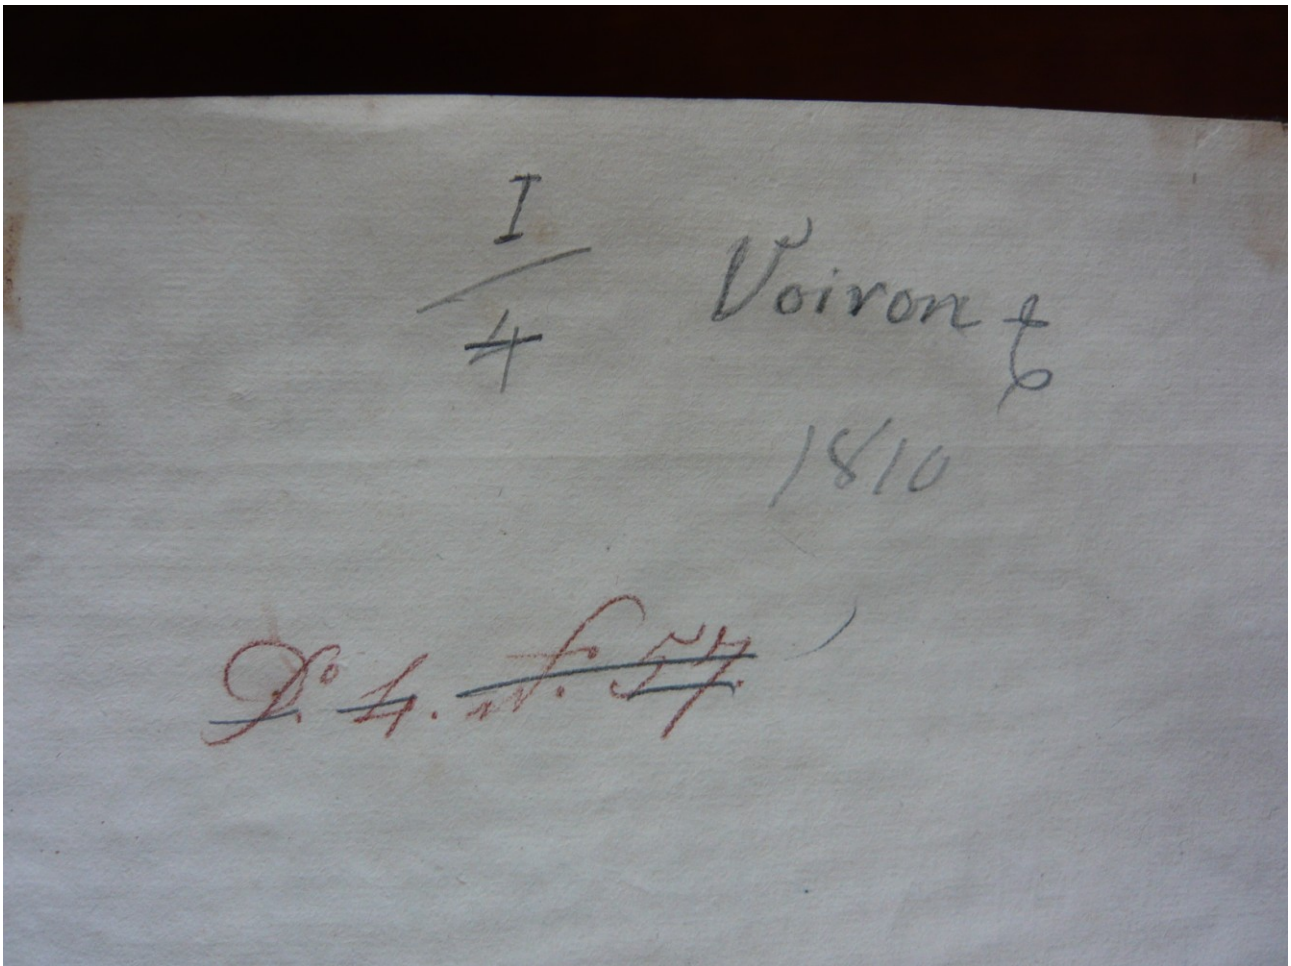 I
4
Voiron
1810
Po 4. N. 57.